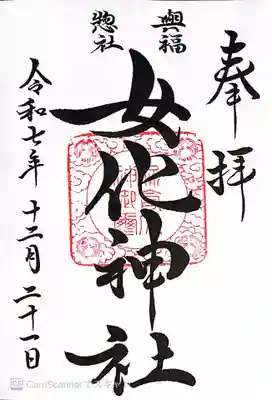 奉拝
興福
惣社
女化神社
令和七年 十二月 二十一日
CamScannerでスキャン